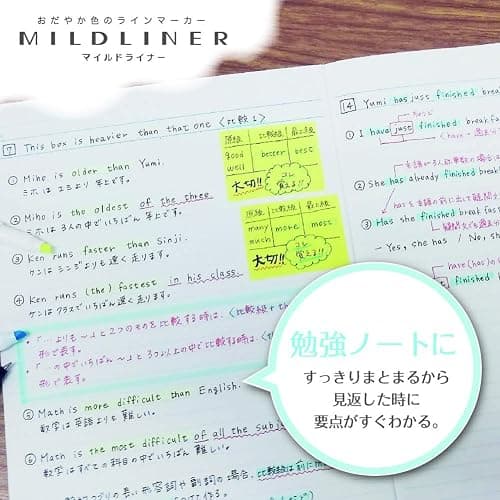 おだやか色のラインマーカー
MILDLINER
マイルドライナー
7 This box is heavier than that one 〈比較1〉
① Miho is older than Yumi.
ミホは ユミより 年上です。
② Miho is the oldest of the three
ミホは 3人の中でいちばん 年上です。
③ Ken runs faster than Sinji.
ケンはシンジよりも速く走ります。
④ Ken runs (the) fastest in his class.
ケンはクラスでいちばん速く走ります。
「…よりも～」と2つのものを比較する時は、〈比較級+th
形で表す。
「…の中でいちばん～」と3つ以上の中で比較する時は、
形で表す。
⑤ Math is more difficult than English.
数学は英語よりも難しい。
⑥ Math is the most difficult of all the subj
数学はすべての科目の中でいちばん難しい。
原級 比較級 最上級
good
well better best
大切!! コレ覚える!!
原級 比較級 最上級
many
much more most
大切!! コレ覚える!!
14 Yumi has just finished break
① I have just finished breakf
② She has already finished break
③ Has she finished break
- Yes, she has / No, sh
勉強ノートに
すっきりまとまるから
見返した時に
要点がすぐわかる。